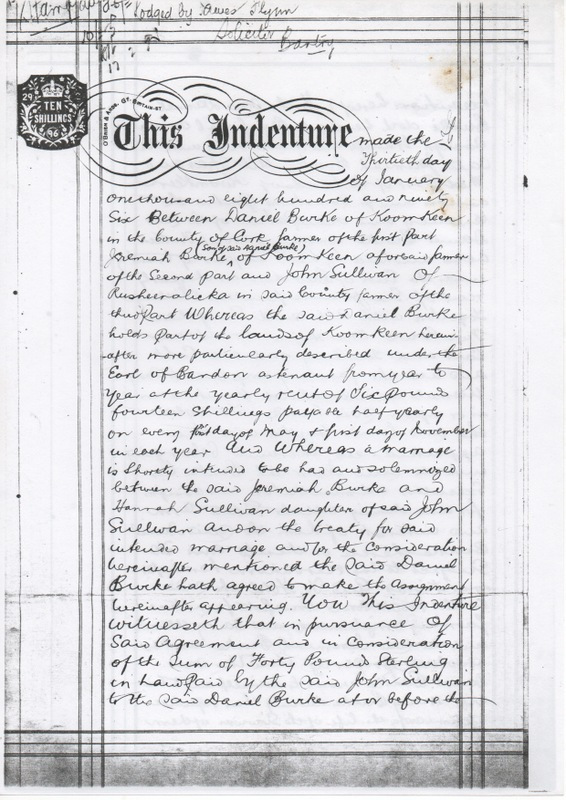 Lodged by James Flynn
Solicitor
Bantry
29
TEN
SHILLINGS
96
O'BRIEN & ARDS. GT. BRITAIN-ST
This Indenture made the
Thirtieth day
of January
one thousand eight hundred and ninety
Six Between Daniel Burke of Koomkeen
in the County of Cork farmer of the first Part
(Son of said Daniel Burke)
Jeremiah Burke of Koomkeen aforesaid farmer
of the Second part and John Sullivan Of
in said County farmer of the
third Part Whereas the said Daniel Burke
holds Part of the lands of Koomkeen herein
after more particularly described under the
Earl of Bandon as tenant from year to
year at the yearly rent of Six Pounds
fourteen Shillings payable half yearly
on every first day of May & first day of November
in each year And Whereas a marriage
is Shortly intended to be had and solemnized
between the said Jeremiah Burke and
Hannah Sullivan daughter of said John
Sullivan And on the treaty for said
intended marriage and for the Consideration
hereinafter mentioned the said Daniel
Burke hath agreed to make the Assignment
hereinafter appearing. Now This Indenture
witnesseth that in pursuance Of
Said Agreement and in Consideration
of the Sum of Forty Pound Sterling
in hand Paid by the said John Sullivan
to the said Daniel Burke at or before the